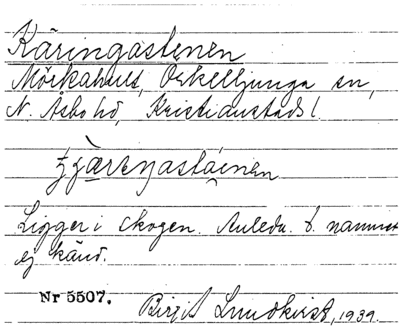 Käringastenen
Mörkahult, Örkelljunga sn,
N. Åsbo hd, Kristianstads l.
Ligger i skogen. Anledn. t. namnet
ej känd.
Nr 5507.
Birgit Lundkvist, 1939.